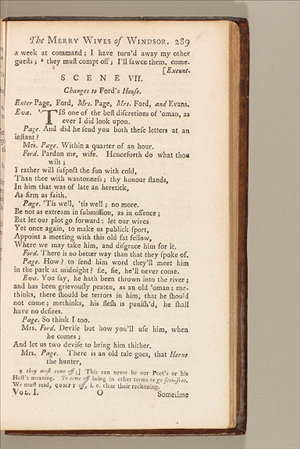 The MERRY WIVES of WINDSOR. 289
a week at command; I have turn'd away my other
guests; ² they must compt off; I'll sawce them. come.
[Exeunt.
SCENE VII.
Changes to Ford's House.
Enter Page, Ford, Mrs. Page, Mrs. Ford, and Evans.
Eva. 'TIS one of the best discretions of 'oman, as
ever I did look upon.
Page. And did he send you both these letters at an
instant?
Mrs. Page. Within a quarter of an hour.
Ford. Pardon me, wife. Henceforth do what thou
wilt;
I rather will suspect the sun with cold,
Than thee with wantonness; thy honour stands,
In him that was of late an heretick,
As firm as faith.
Page. 'Tis well, 'tis well; no more.
Be not as extream in submission, as in offence;
But let our plot go forward: let our wives
Yet once again, to make us publick sport,
Appoint a meeting with this old fat fellow,
Where we may take him, and disgrace him for it.
Ford. There is no better way than that they spoke of.
Page. How? to send him word they'll meet him
in the park at midnight? fie, fie, he'll never come.
Eva. You say, he hath been thrown into the river;
and has been grievously peaten, as an old 'oman; me-
thinks, there should be terrors in him, that he should
not come; methinks, his flesh is punish'd, he shall
have no desires.
Page. So think I too.
Mrs. Ford. Devise but how you'll use him, when
he comes;
And let us two devise to bring him thither.
Mrs. Page. There is an old tale goes, that Herne
the hunter,
2 they must come off;] This can never be our Poet's or his
Host's meaning. To come off being in other terms to go scot-free.
We must read, COMPT off, i. e. clear their reckoning.
VOL. I. O Sometime